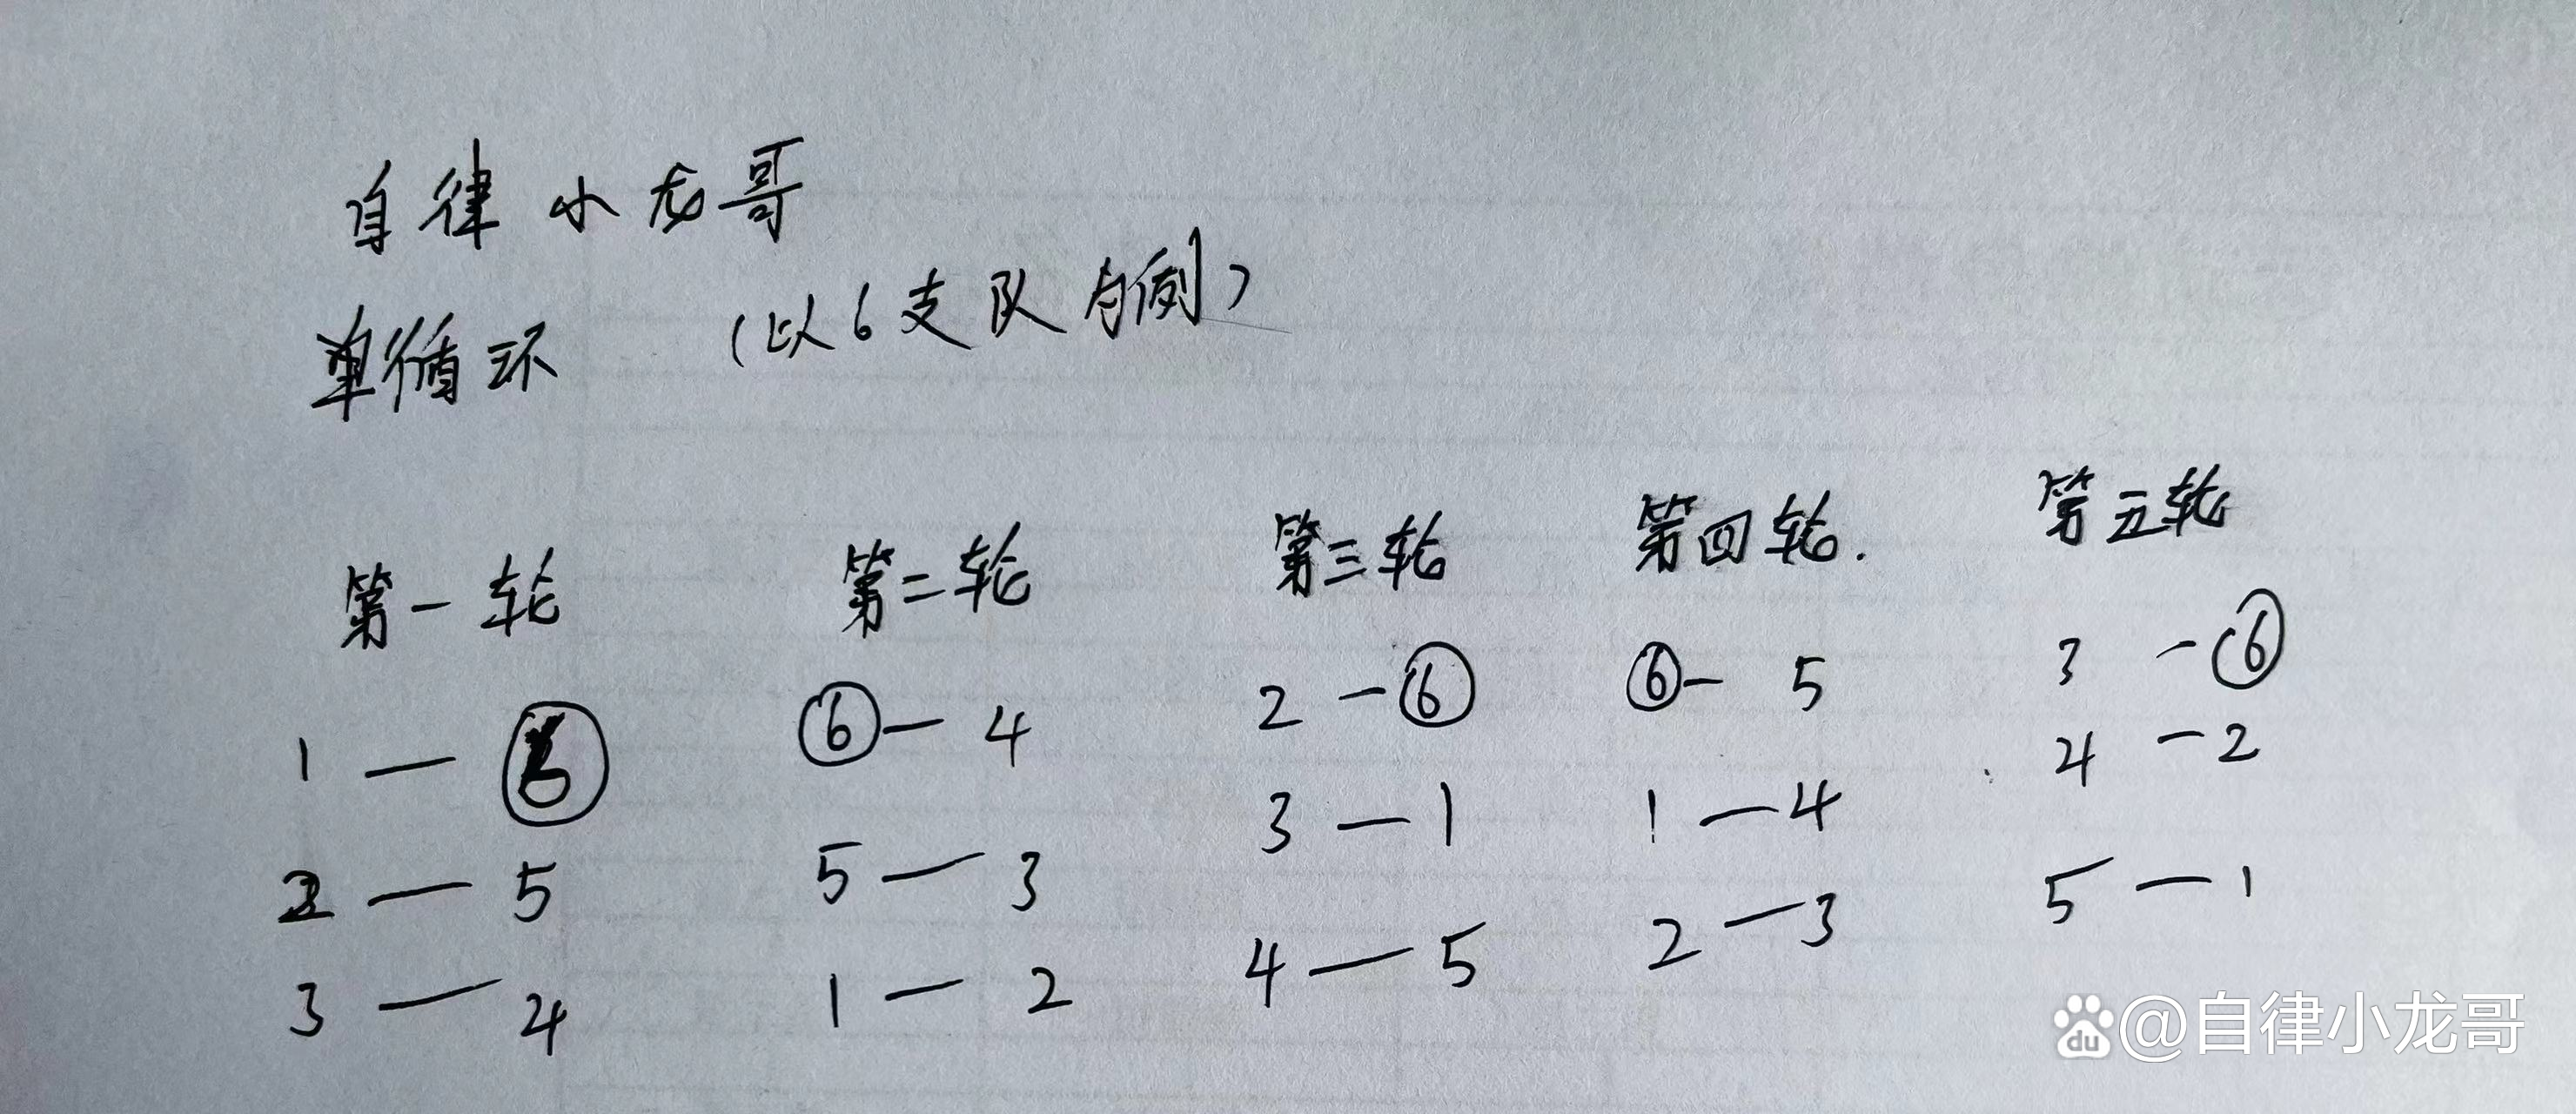 自律小龙哥
单循环 (以6支队为例)
第一轮 第二轮 第三轮 第四轮. 第五轮
1 — ⑥ ⑥ — 4 2 — ⑥ ⑥ — 5 3 — ⑥
2 — 5 5 — 3 3 — 1 1 — 4 4 — 2
3 — 4 1 — 2 4 — 5 2 — 3 5 — 1
du @自律小龙哥